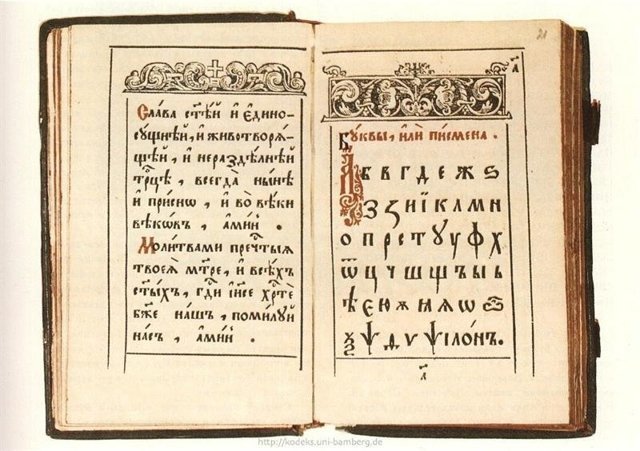 Сла́ва ст҃ѣ́й и҆ є҆дино-
сꙋ́щнѣй, и҆ животворѧ́-
щѣй, и҆ нераздѣ́лнѣй
трⷪ҇цѣ, всегда̀ ны́нѣ
и҆ при́снѡ, и҆ во вѣ́ки
вѣкѡ́въ, а҆ми́нь.
Моли́твами пречⷭ҇тыѧ
твоеѧ̀ мт҃ре, и҆ всѣ́хъ
ст҃ы́хъ, гдⷭ҇и і҆и҃се хрⷭ҇тѐ
бж҃е на́шъ, поми́лꙋй
на́съ, а҆ми́нь.
21
а҃
Бꙋ́квы, и҆лѝ писмена̀.
А б в г д е ж ѕ
З ꙁ и ї к л м н
о п р с т ꙋ у ф х
ѿ ц ч ш щ ъ ы ь
ѣ є ю ж ꙗ ѧ ѡ ѽ
ѯ ѱ д ѵ ѱїло́нъ.
http://kodeks.uni-bamberg.de